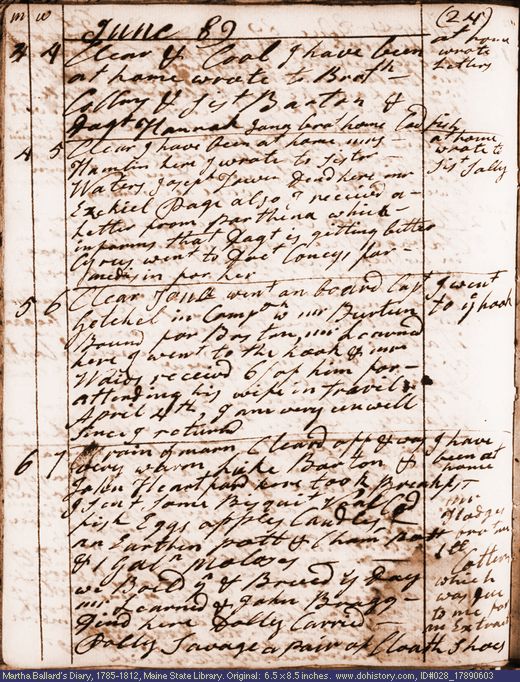 m w June 89 (24)
3 4 Clear & Cool I have been
at home wrote to Broth
Colling & Sist Barton &
Dagt Hannah
at home
wrote
letters
4 5 Clear I have been at home mrs
Hamlin here I wrote to Sister
Waters Josep dind here mr
Ezekiel Page also I received a
letter from Parthena which
informs that Dagt is gitting better
Cyrus went to Doct Conys for
medisin for her
at home
wrote to
Sist Sally
5 6 Clear went on board Capt
Getchel in Comp w mr Burtun
Bound for Boston, mr Learned
here I went to the hook & mr
Wais received 6/ of him for
attending his wife in travel
April 4th, I am very unwell
Since I returnd
I went
to ye hook
6 7 rain ye morn Cleard off & was
very warm Luke Barton &
John Heartford here took Breakft
I Sent Some Bisquit
fish Eggs apples Candles &
an Earthin pott & Cham pott
& 1 Galn Molases
we Breld & Brewed ye Day
mr Learned & John Bragg
Dind here Dolly Carried
Dolly Savage a pair of Cloath Shoes
I have
been at
home
mr
Hodges
Lottery
which
was due
to me for
an Extract
Martha Ballard's Diary, 1785-1812, Maine State Library. Original: 6.5 x 8.5 inches. www.dohistory.com, ID#028_17890603